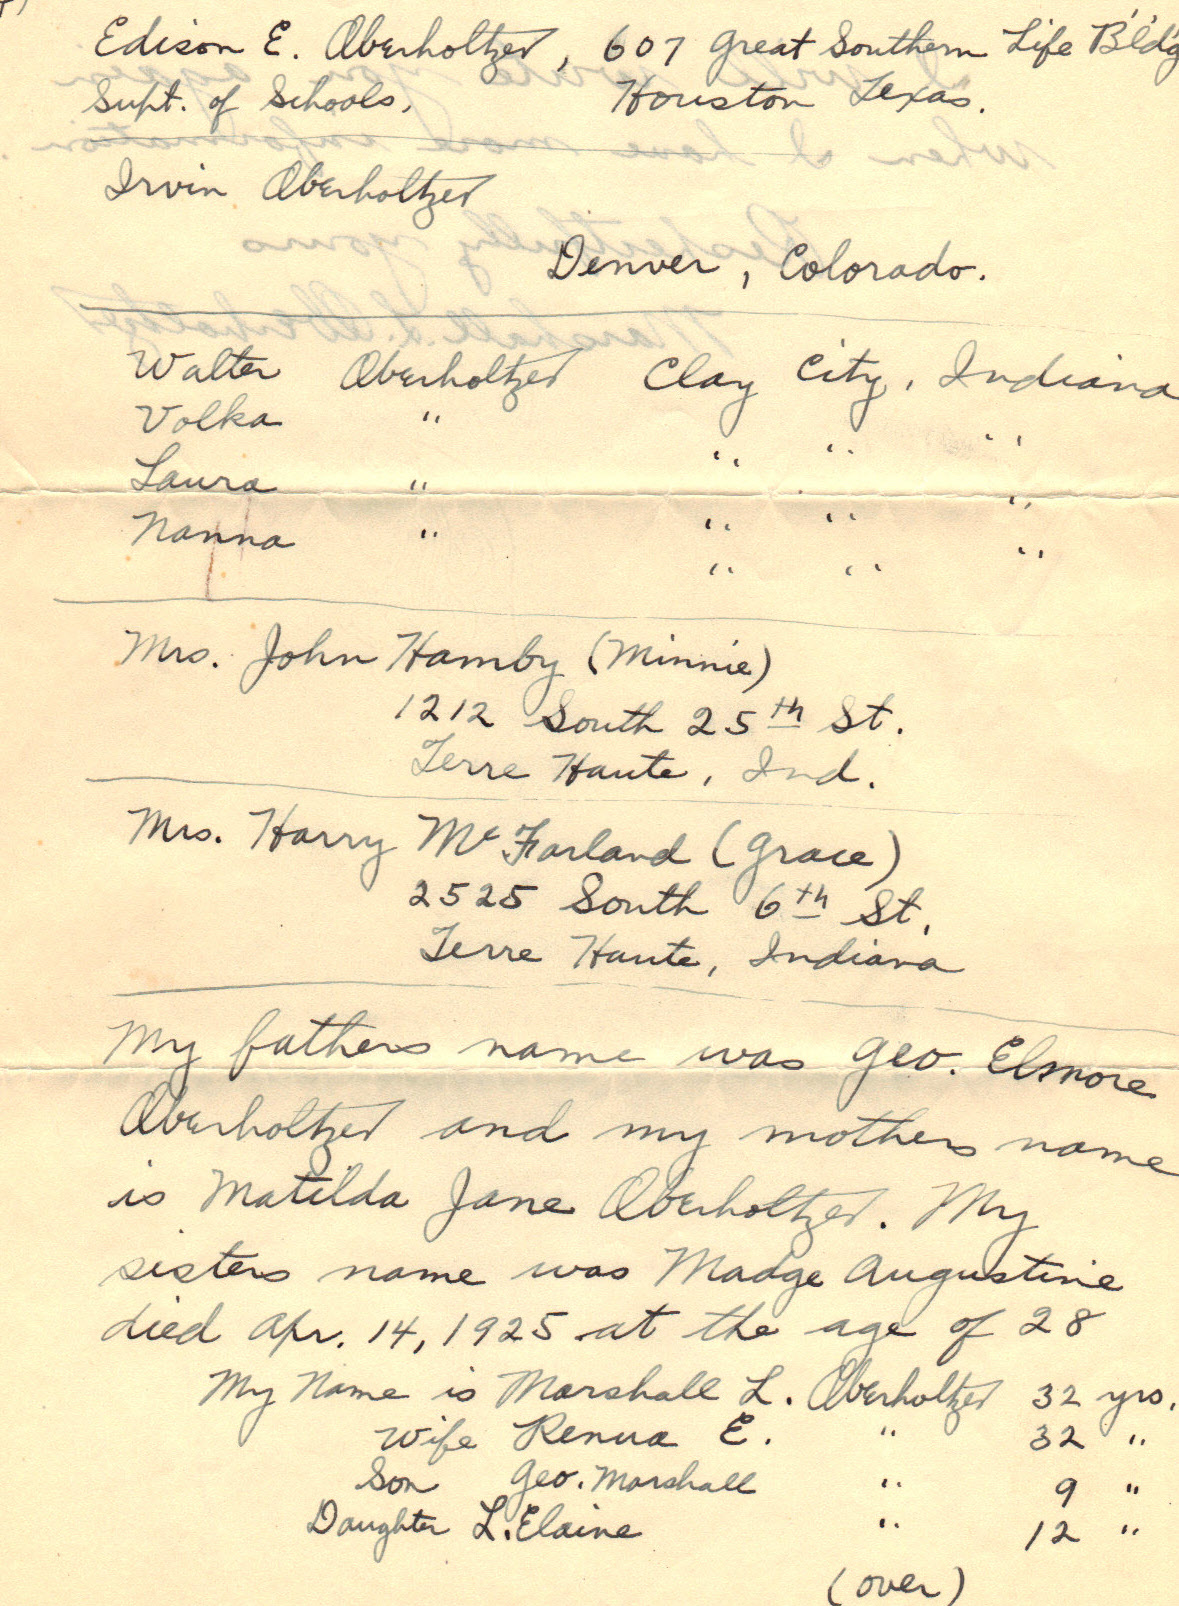 Edison E. Oberholtzer, 607 Great Southern Life Bld'g
Supt. of Schools, Houston Texas.
Irvin Oberholtzer
Denver, Colorado.
Walter Oberholtzer Clay City, Indiana
Volka " " " "
Laura " " " "
Nanna " " " "
Mrs. John Hamby (Minnie)
1212 South 25th St.
Terre Haute, Ind.
Mrs. Harry McFarland (Grace)
2525 South 6th St.
Terre Haute, Indiana
My fathers name was Geo. Elmore
Oberholtzer and my mothers name
is Matilda Jane Oberholtzer. My
sisters name was Madge Augustine
died Apr. 14, 1925 at the age of 28
My Name is Marshall L. Oberholtzer 32 yrs.
Wife Renua E. " 32 "
Son Geo. Marshall " 9 "
Daughter L. Elaine " 12 "
(over)